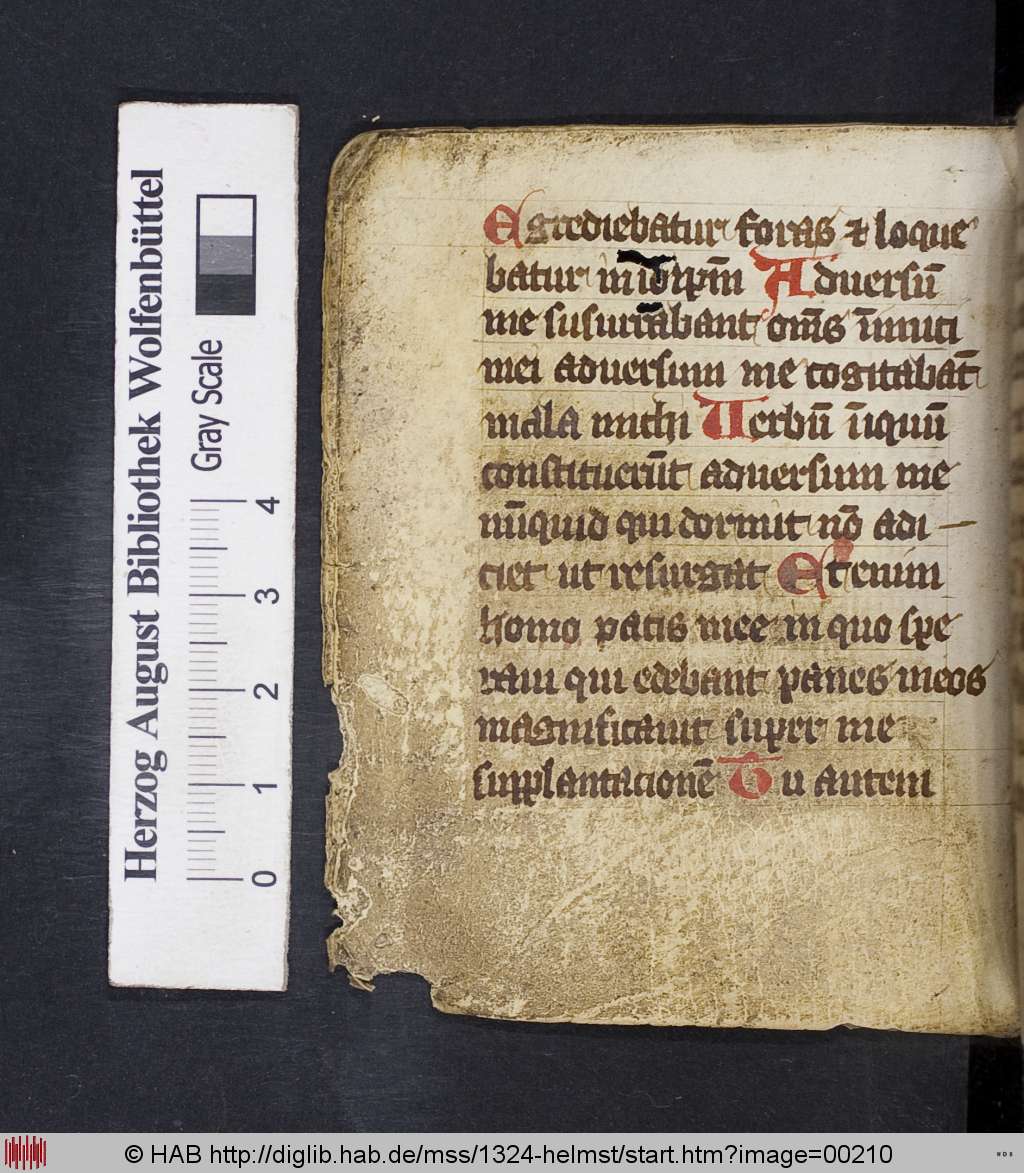 Herzog August Bibliothek Wolfenbüttel
Gray Scale
0 1 2 3 4
Egrediebatur foras ⁊ loque
batur in iđip̄m Aduersū
me susurrabant om̄s īimici
mei aduersum me cogitabāt
mala michi Uerbū īiquū
constituerūt aduersum me
nūquid qui dormit nō adi
ciet ut resurgat Etenim
homo pacis mee in quo spe
raui qui edebant panes meos
magnificauit super me
supplantacionē Tu autem
© HAB http://diglib.hab.de/mss/1324-helmst/start.htm?image=00210